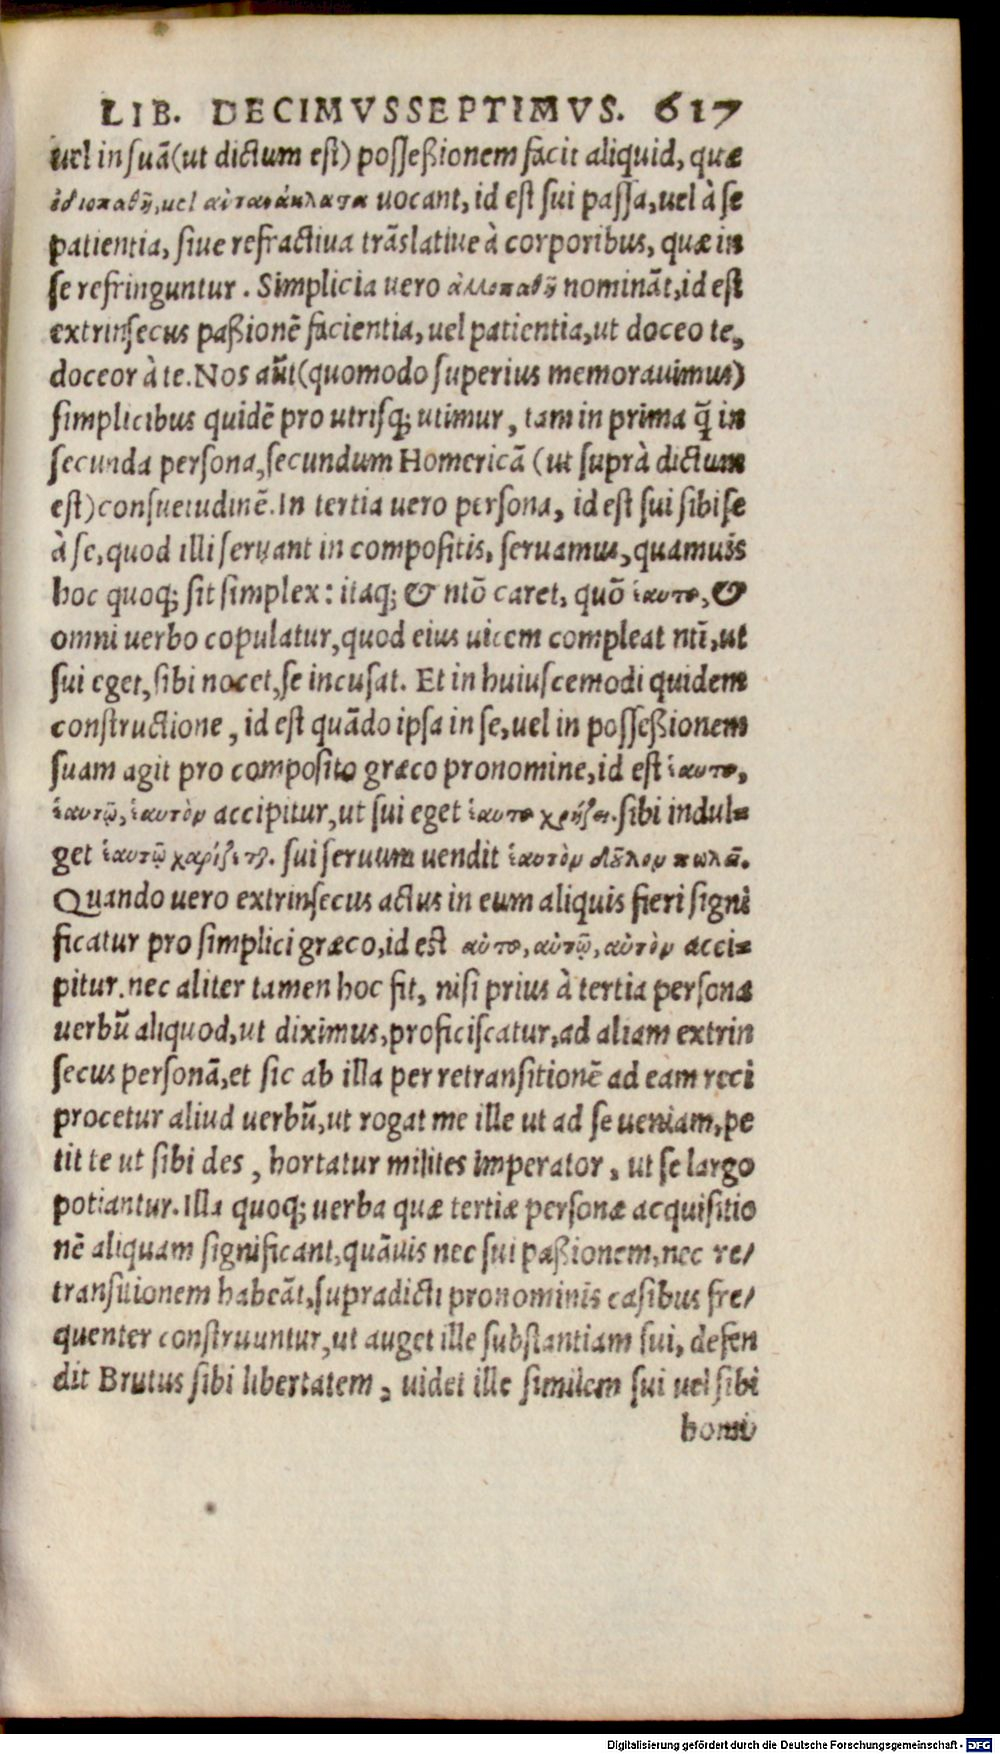 LIB. DECIMVSSEPTIMVS. 617
uel in suã (ut dictum est) possessionem facit aliquid, quæ
ἰδιοπαθῆ, uel αὐτανάκλατα uocant, id est sui passa, uel à se
patientia, siue refractiua trãslatiue à corporibus, quæ in
se refringuntur. Simplicia uero ἀλλοπαθῆ nominãt, id est
extrinsecus paßionẽ facientia, uel patientia, ut doceo te,
doceor à te. Nos aũt (quomodo superius memorauimus)
simplicibus quidẽ pro utrisq; utimur, tam in prima q̃ in
secunda persona, secundum Homericã (ut suprà dictum
est) consuetudinẽ. In tertia uero persona, id est sui sibi se
à se, quod illi seruant in compositis, seruamus, quamuis
hoc quoq; sit simplex: itaq; & ntõ caret, quõ ἑαυτο, &
omni uerbo copulatur, quod eius uicem compleat ntĩ, ut
sui eget, sibi nocet, se incusat. Et in huiuscemodi quidem
constructione, id est quãdo ipsa in se, uel in posseßionem
suam agit pro composito græco pronomine, id est ἑαυτο,
ἑαυτῷ, ἑαυτὸν accipitur, ut sui eget ἑαυτο χρῄζει. sibi indul=
get ἑαυτῷ χαρίζεται. sui seruum uendit ἑαυτὸν δοῦλον πωλεῖ.
Quando uero extrinsecus actus in eum aliquis fieri signi
ficatur pro simplici græco, id est αὐτο, αὐτῷ, αὐτὸν acci=
pitur. nec aliter tamen hoc fit, nisi prius à tertia persona
uerbũ aliquod, ut diximus, proficiscatur, ad aliam extrin
secus personã, et sic ab illa per retransitionẽ ad eam reci
procetur aliud uerbũ, ut rogat me ille ut ad se ueniam, pe
tit te ut sibi des, hortatur milites imperator, ut se largo
potiantur. Illa quoq; uerba quæ tertiæ personæ acquisitio
nẽ aliquam significant, quãuis nec sui paßionem, nec re/
transitionem habeãt, supradicti pronominis casibus fre/
quenter construuntur, ut auget ille substantiam sui, defen
dit Brutus sibi libertatem, uidet ille similem sui uel sibi
homi
Digitalisierung gefördert durch die Deutsche Forschungsgemeinschaft - DFG